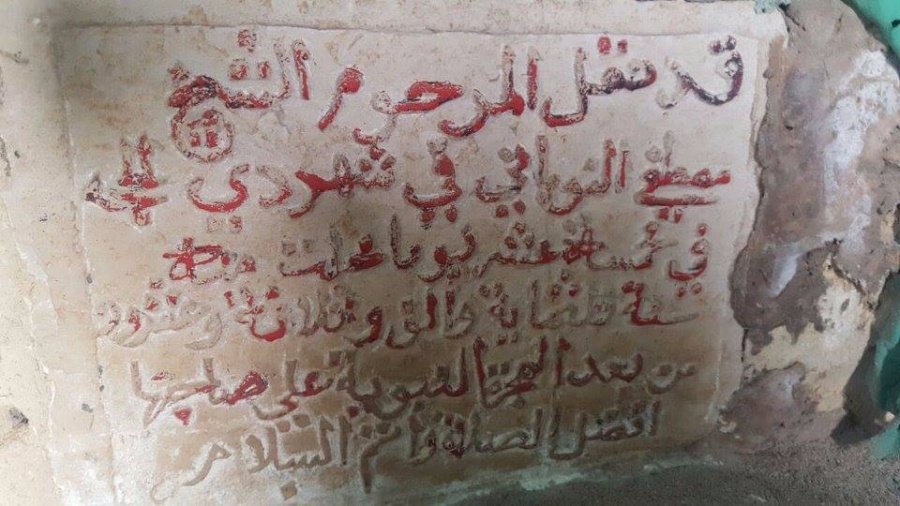 قد نقل المرحوم الشيخ
مصطفي النوباتي في شهر ذي الحجه
في خمسة عشر يوما خلت منه
سنة ثلثماية والف وثلاثة وعشرون
من بعد الهجرة النبوية علي صاحبها
افضل الصلاة واتم السلام